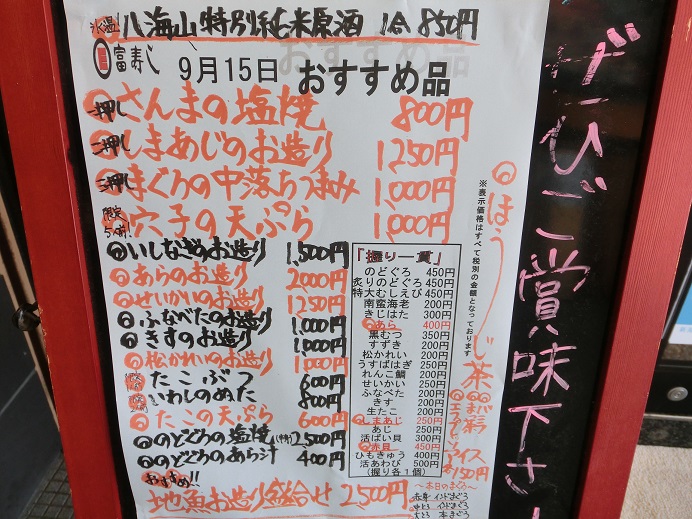 氷温!八海山特別純米原酒 1合850円
富寿し
9月15日 おすすめ品
一押し さんまの塩焼 800円
二押し しまあじのお造り 1250円
三押し まぐろの中落ちつまみ 1,000円
限定5人前! 穴子の天ぷら 1,000円
いしなぎのお造り 1,500円
あらのお造り 2000円
せいかいのお造り 1250円
ふなべたのお造り 1,000円
きすのお造り 1,000円
松かれいのお造り 1000円
たこぶつ 600円
いわしのぬた 800円
たこの天ぷら 600円
のどぐろの塩焼(中半) 2,500円
のどぐろのあら汁 400円
おすすめ!!
地魚お造り盛合せ 2,500円
「握り一貫」
のどぐろ 450円
炙りのどぐろ 450円
特大むしえび 450円
南蛮海老 200円
きじはた 300円
あら 400円
黒むつ 350円
すずき 200円
松かれい 200円
うすばはぎ 250円
れんこ鯛 200円
せいかい 250円
ふなべた 200円
きす 200円
生たこ 200円
しまあじ 250円
あじ 250円
活ばい貝 300円
赤貝 450円
ひもきゅう 400円
活あわび 500円
(握り各1個)
※表示価格はすべて税別の金額となっております
ほうじ茶
アイス
150円
~本日のまぐろ~
赤身 インドまぐろ
中とろ インドまぐろ
大とろ 本まぐろ
ぜひご賞味下さ